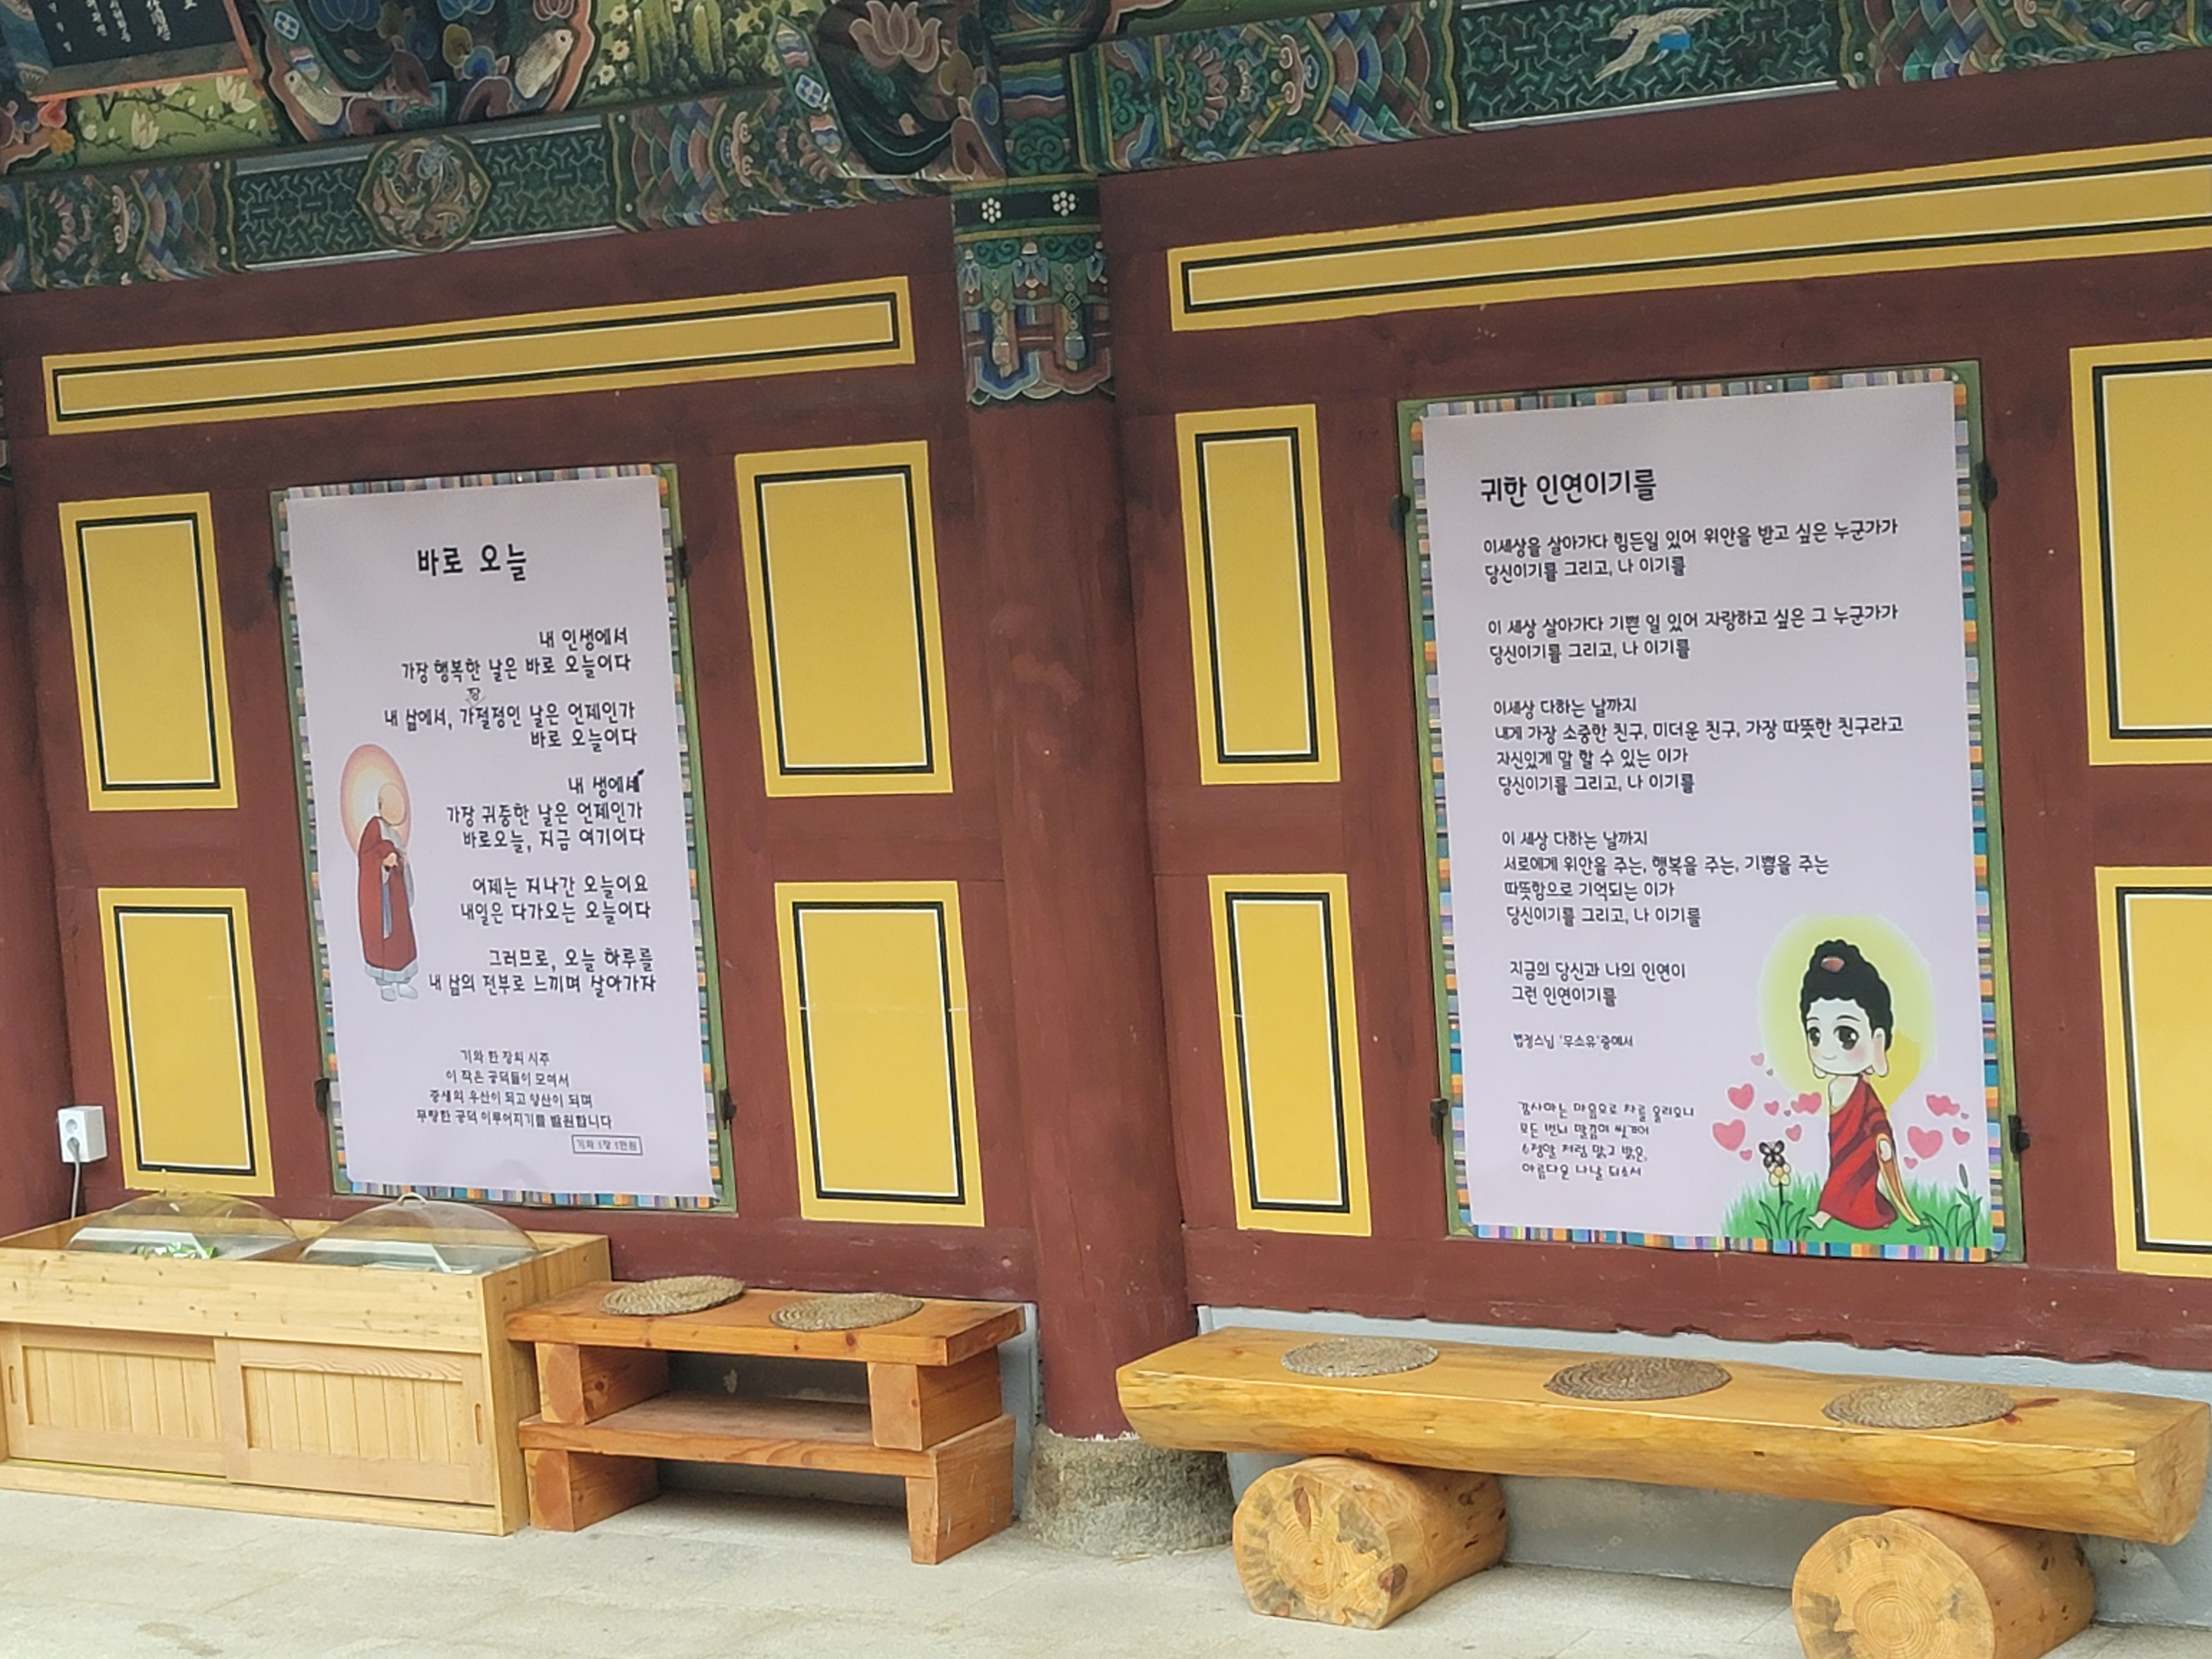 바로 오늘
내 인생에서
가장 행복한 날은 바로 오늘이다
장
내 삶에서, 가절정인 날은 언제인가
바로 오늘이다
내 생에서
가장 귀중한 날은 언제인가
바로오늘, 지금 여기이다
어제는 지나간 오늘이요
내일은 다가오는 오늘이다
그러므로, 오늘 하루를
내 삶의 전부로 느끼며 살아가자
기와 한 장의 시주
이 작은 공덕들이 모여서
중생의 우산이 되고 양산이 되며
무량한 공덕 이루어지기를 발원합니다
기와 1장 1만원
귀한 인연이기를
이세상을 살아가다 힘든일 있어 위안을 받고 싶은 누군가가
당신이기를 그리고, 나 이기를
이 세상 살아가다 기쁜 일 있어 자랑하고 싶은 그 누군가가
당신이기를 그리고, 나 이기를
이세상 다하는 날까지
내게 가장 소중한 친구, 미더운 친구, 가장 따뜻한 친구라고
자신있게 말 할 수 있는 이가
당신이기를 그리고, 나 이기를
이 세상 다하는 날까지
서로에게 위안을 주는, 행복을 주는, 기쁨을 주는
따뜻함으로 기억되는 이가
당신이기를 그리고, 나 이기를
지금의 당신과 나의 인연이
그런 인연이기를
법정스님 '무소유'중에서
감사하는 마음으로 차를 올리오니
모든 번뇌 말끔히 씻기어
처럼 맑고 밝은,
아름다운 나날 되소서